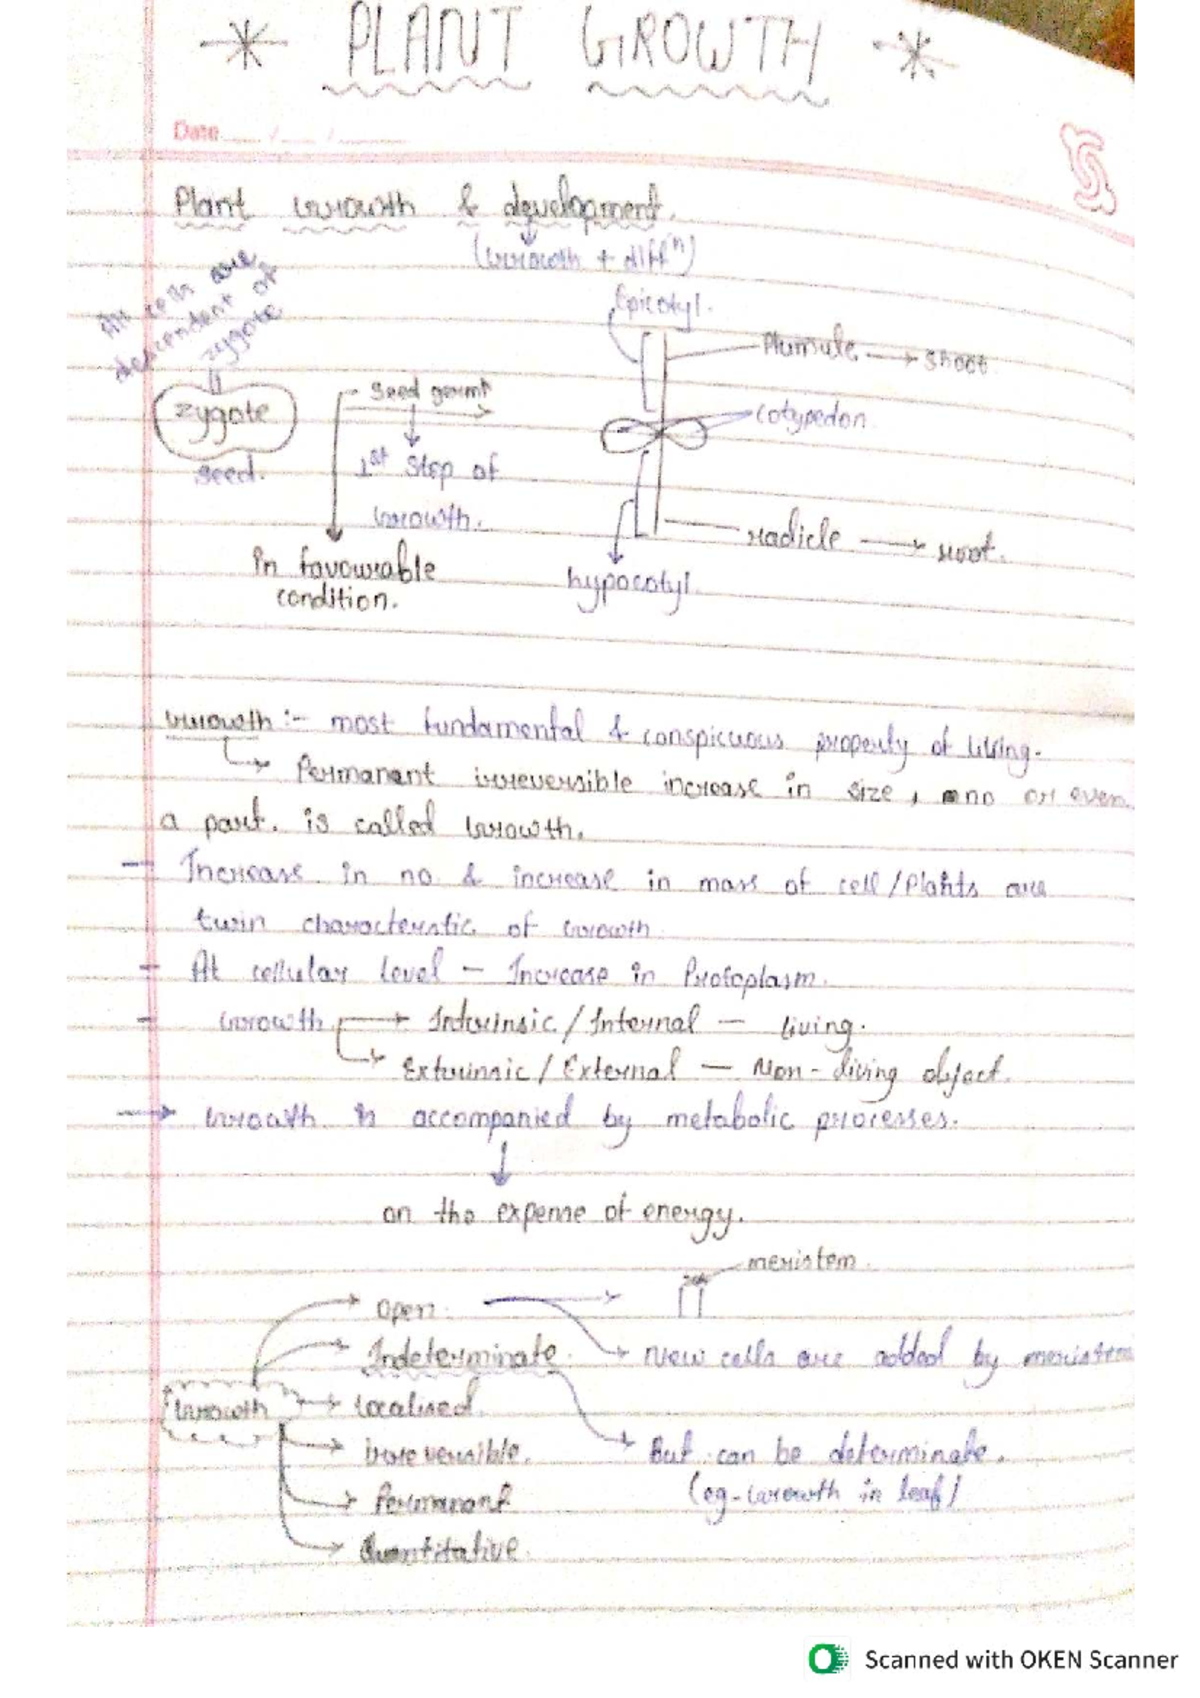 PLANT GROWTH
Date
Plant Growth & development.
(Growth + diffⁿ)
All cells are
descendent of
zygote
zygote
seed.
Seed germt
1st Step of
Growth.
In favourable
condition.
Epicotyl.
Plumule → Shoot
Cotypedon
radicle → root.
hypocotyl
Growth :- most fundamental & conspicuous property of living.
Permanant irreversible increase in size, no or even
a part. is called Growth.
- Increase in no & increase in mass of cell/Plants are
twin characterstic of Growth
- At cellular level - Increase in Protoplasm.
- Growth → Intrinsic / Internal - living.
→ Extrinsic / External - Non-living object.
→ Growth is accompanied by metabolic processes.
on the expense of energy.
meristem
Open
Indeterminate → New cells are added by meristem
Growth → localised
irreversible. → But can be determinate.
Permanant (eg-Growth in leaf)
Quantitative
Scanned with OKEN Scanner